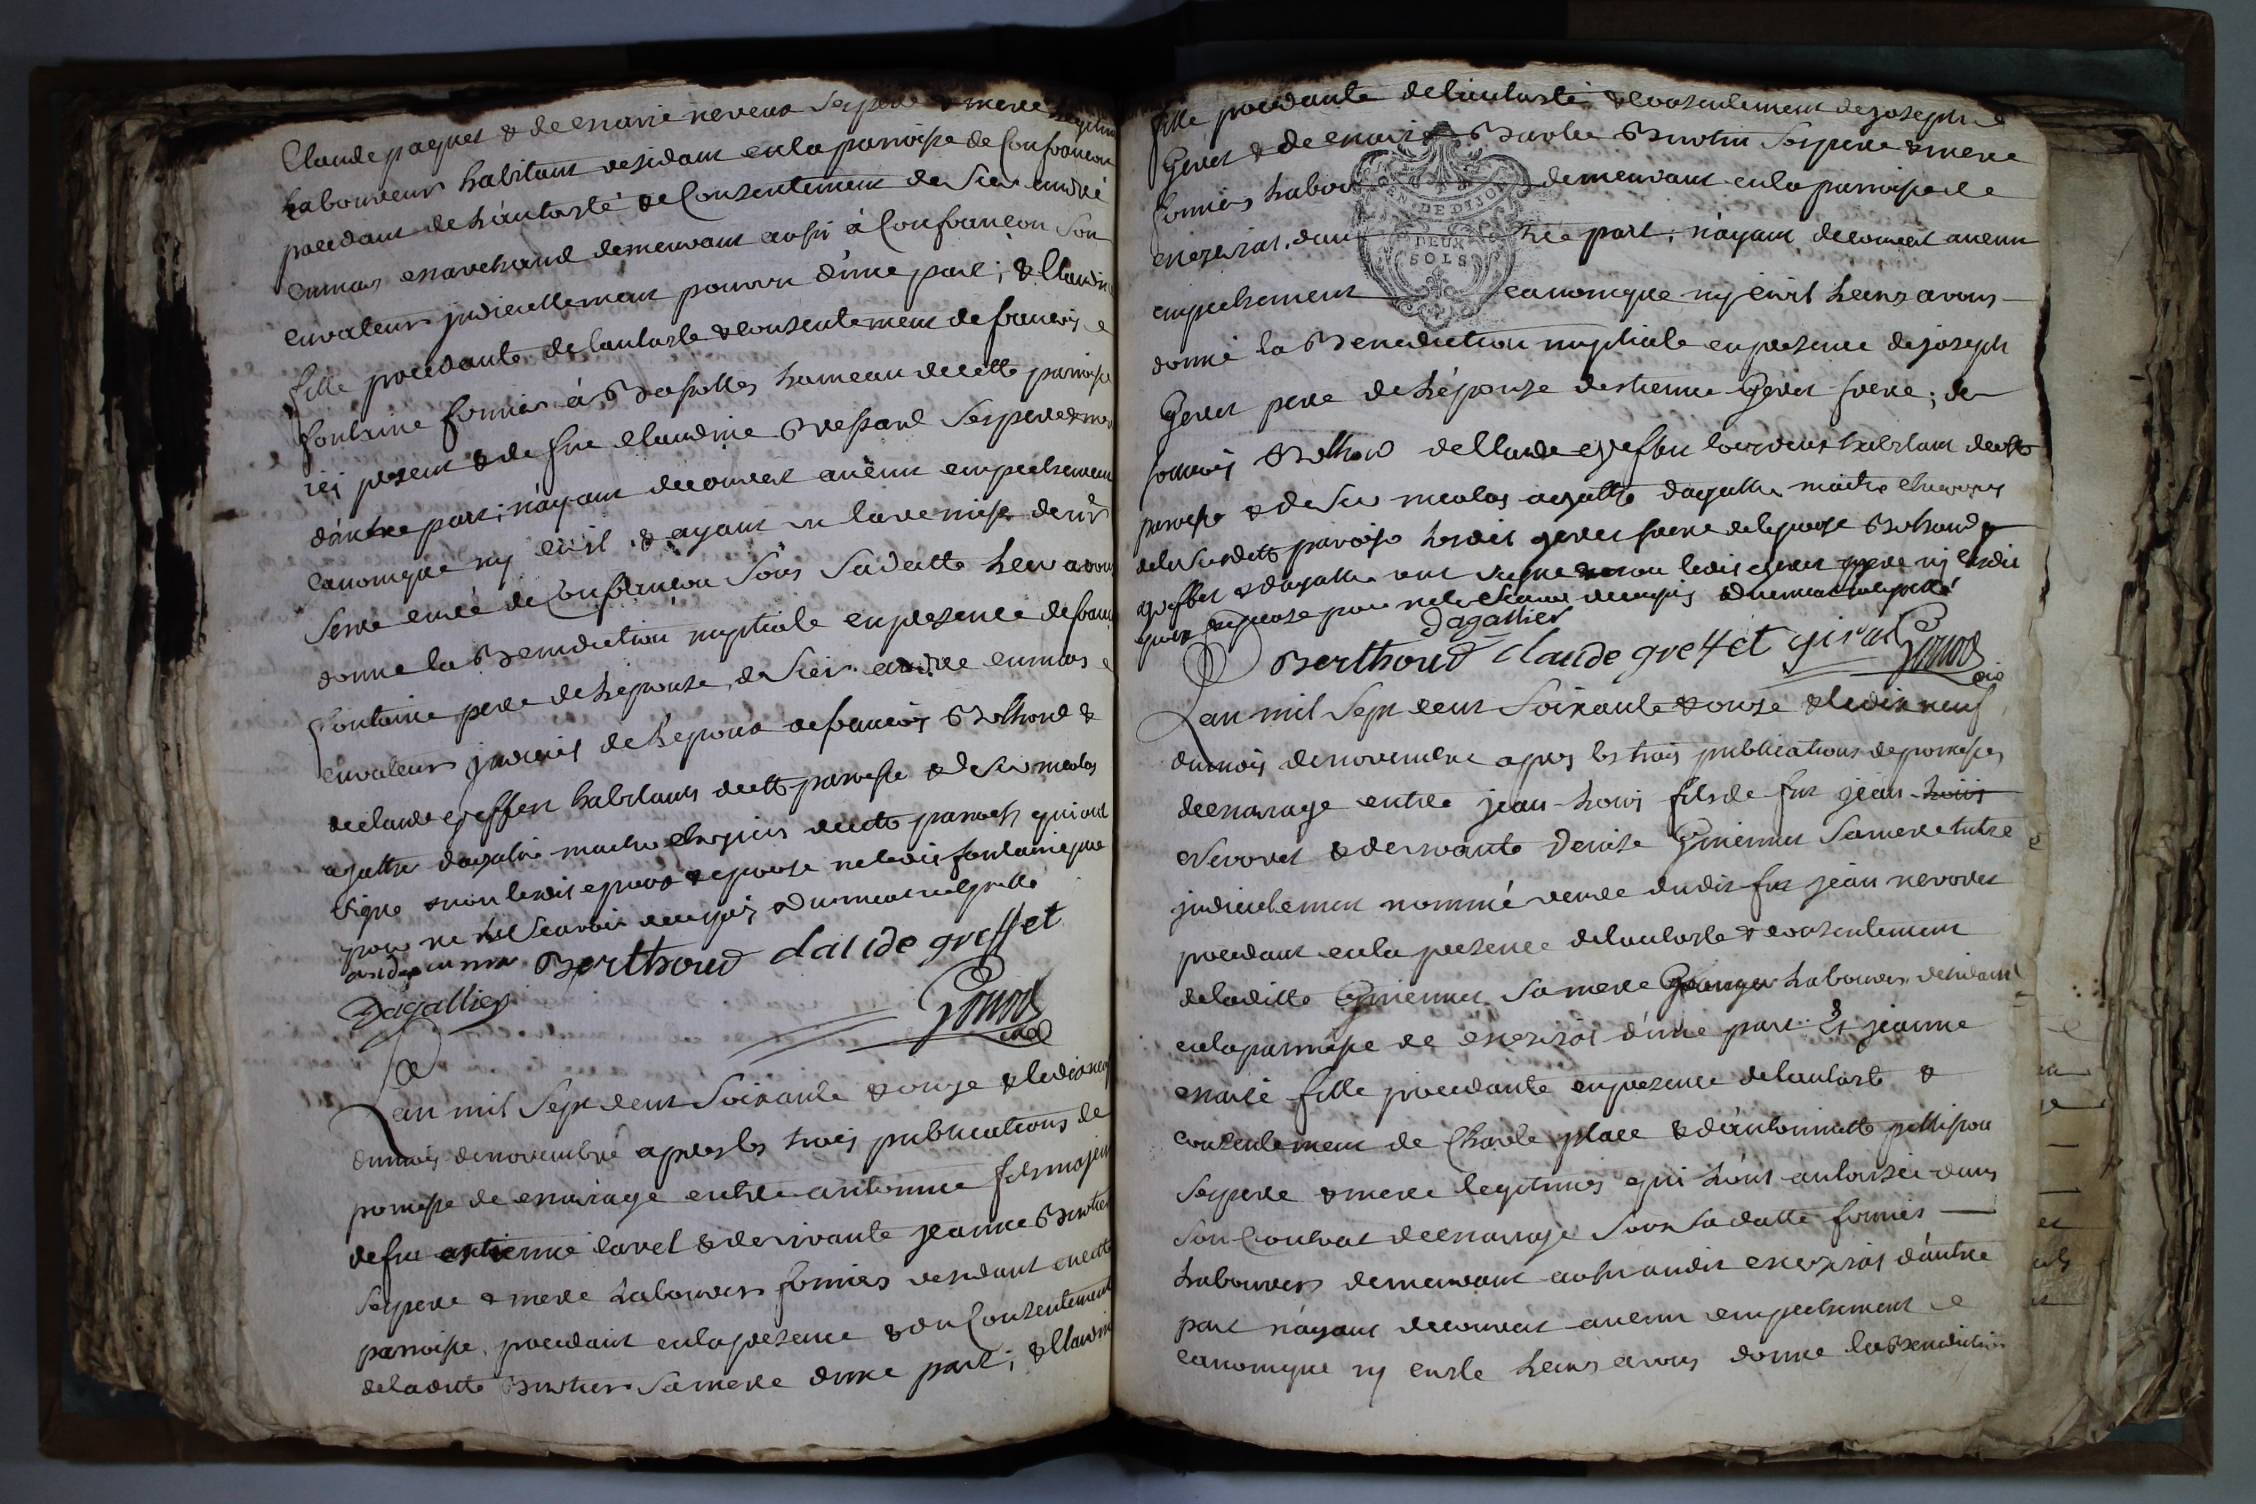 Claude paquet & de marie neveux ses pere & mere legitim
laboureur habitant residant en la parroisse de Confrancon
procedant de l'autorité & Consentement de Sieur andré
cumas marchand demeurant aussi à Confrançon Son
curateur judiciellement pourvu d'une part ; & Claudin
fille procedante de lautorte & consentement de francois
fontaine fermier à hameau de cette parroisse
ici present & de fue Claudine Bressand ses pere & mer
d'autre part ; n'ayant decouvert aucun empechement
canonique ny civil & ayant vu la remise de mr
Serre curé de Confrancon Sous Sa datte Leur avons
donne la Benediction nuptiale en presence de franc
fontaine pere de L'epouse, de Sieur andre cumas
curateur judiciel de L'epoux de francois Berthoud &
de claude greffet habitants de cette parroisse & de Sieur nicolas
agathe dagalier maitre chirurgien de cette parroisse qui ont
signé & non ledit epoux & epouse ne ledit fontaine pere
pour ne Scavoir de ce enquis & duement interpellé
Berthoud claude greffet
Dagallier
Gonod
curé
Lan mil Sept cent Soixante & onze & le dix neuf
du mois de novembre apres les trois publications de
promesse de mariage entre antoinne fils majeur
de feu etienne lavet & de vivante jeanne Burtier
Ses pere & mere Laboureur fermier residant en cette
parroisse, procedant en la presence & du Consentement
de ladite Burtier Sa mere d'une part ; & Claudin
fille procedante de l'autorité & consentement de joseph
Geret & de mari Burtin Ses pere & mere
fermier labou demeurant en la parroisse de
mezeriat, d'au tre part ; n'ayant decouvert aucun
GEN. DE DIJON
DEUX
SOLS
empechement canonique ny civil Leurs avons
donné la Benediction nuptiale en presence de joseph
Geret pere de L'épouse d'estienne Geret frere ; de
francois Berthoud de Claude greffet laboureurs habitant de cette
parroisse & de Sieur nicolas agathe dagallier maitre chirurgien
de la Susditte parroisse ledit geret frere de lepouse Berthoud
greffet & dagallier ont signe & non ledit geret pere ny lesdits
epoux & epouse pour ne le Scavoir de ce enquis & duement interpellé
Dagallier
Berthoud claude greffet Gonod
curé
Lan mil Sept cent Soixante & onze & le dix neuf
du mois de novembre apres les trois publications de promesses
de mariage entre jean-Louis fils de feu jean Louis
Nevoret & de vivante Denise Guiennet Sa mere tutrice
judiciellement nommé veuve dudit feu jean nevoret
procedant en la presence de lautorte & consentement
de laditte Guiennet Sa mere Laboureur residant
en la parroisse de mezeriat d'une part. Et jeanne
marie fille procedante en presence de lautorte &
consentement de Charle place & d'antoinette pellisson
Ses pere & mere legitimes qui L'ont autorisée dans
Son Contrat de mariage Sous Sa datte fermier
laboureur demeurant aussi audit mezeriat d'autre
part n'ayant decouvert aucun empechement
canonique ny civile Leurs avons donne la Benediction